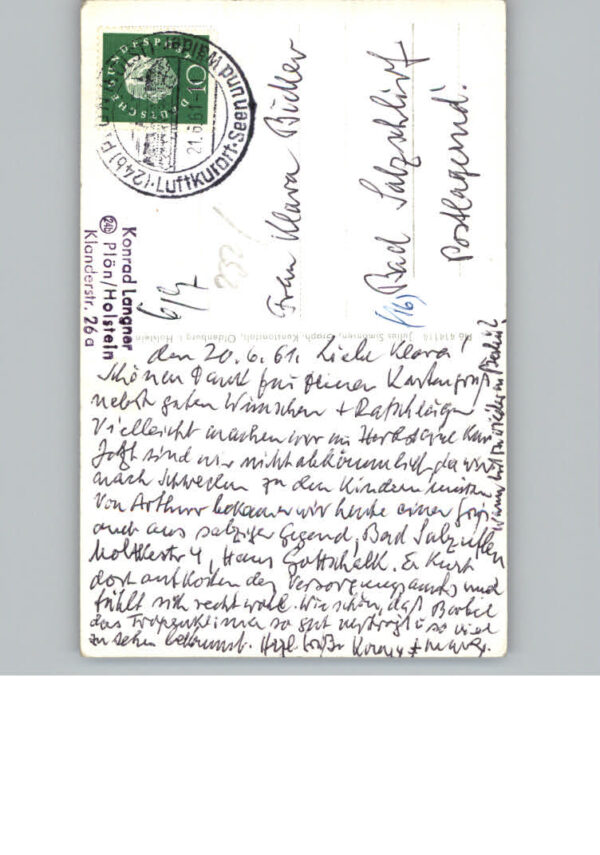 den 20.6.61. Liebe Klara!
Schönen Dank für Deinen Kartengruß
nebst guten Wünschen + Ratschlägen
Vielleicht machen wir im Herbst eine Kur
Jetzt sind wir nicht abkömmlich, da wir
nach Schweden zu den Kindern
Von Arthur bekamen wir heute einen
auch aus salziger Gegend, Bad Salzuflen
Moltkestr 4, Haus Gottschalk. Er kurt
dort auf Kosten des Versorgungsamts und
fühlt sich recht wohl. Wie schön, daß Bärbel
das Tropenklima so gut verträgt u so viel
zu sehen bekommt. Herzl. Grüße
Wann bist Du wieder in
Frau Klara Büller
(16) Bad Salzschlirf
Postlagernd.
Konrad Langner
24b Plön/Holstein
Klanderstr. 26a
DEUTSCHE BUNDESPOST
10
21.6.61-10
(24b) PLÖN
Luftkurort · Seen und Wälder
Julius Simonsen, Graph. Kunstanstalt, Oldenburg i. Holstein